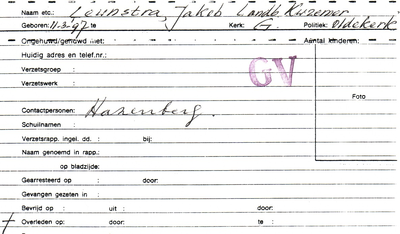 Naam etc.: Teunstra, Jakob Lande Kuzemer
Geboren: 11-3-97 te Kerk: G. Politiek: Oldekerk
Ongehuwd/gehuwd met: Aantal kinderen:
Huidig adres en telef.nr.:
Verzetsgroep :
Verzetswerk :
GV
Foto
Contactpersonen: Hazenberg.
Schuilnaam :
Verzetsrapp. ingel. dd. : bij:
Naam genoemd in rapp.:
op bladzijde:
Gearresteerd op : door:
Gevangen gezeten in :
Bevrijd op : uit : door:
Overleden op: door: te :